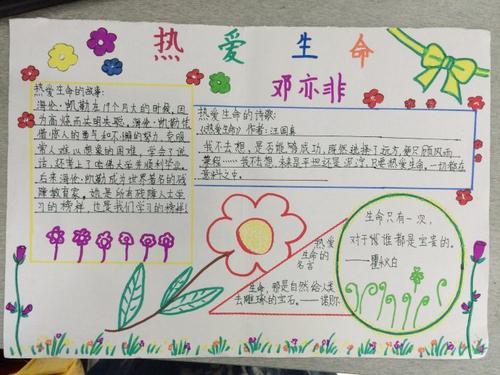 热爱生命
邓亦非
热爱生命的故事:
海伦·凯勒在19个月大的时候,因
为高烧而失明失聪。海伦·凯勒凭
借惊人的勇气和不懈的努力,克服
常人难以想象的困难,学会了说
话,还考上了哈佛大学并顺利毕业。
后来海伦·凯勒成为世界著名的残
障教育家。她是所有残障人士学
习的榜样,也是我们学习的榜样!
热爱生命的诗歌:
《热爱生命》作者:汪国真
我不去想,是否能够成功,既然选择了远方,便只顾风雨
兼程……我不去想,未来是平坦还是泥泞,只要热爱生命,一切都在
意料之中。
热爱
生命的
名言
生命,那是自然给人类
去雕琢的宝石。——诺贝尔
生命只有一次,
对于谁都是宝贵的。
——瞿秋白